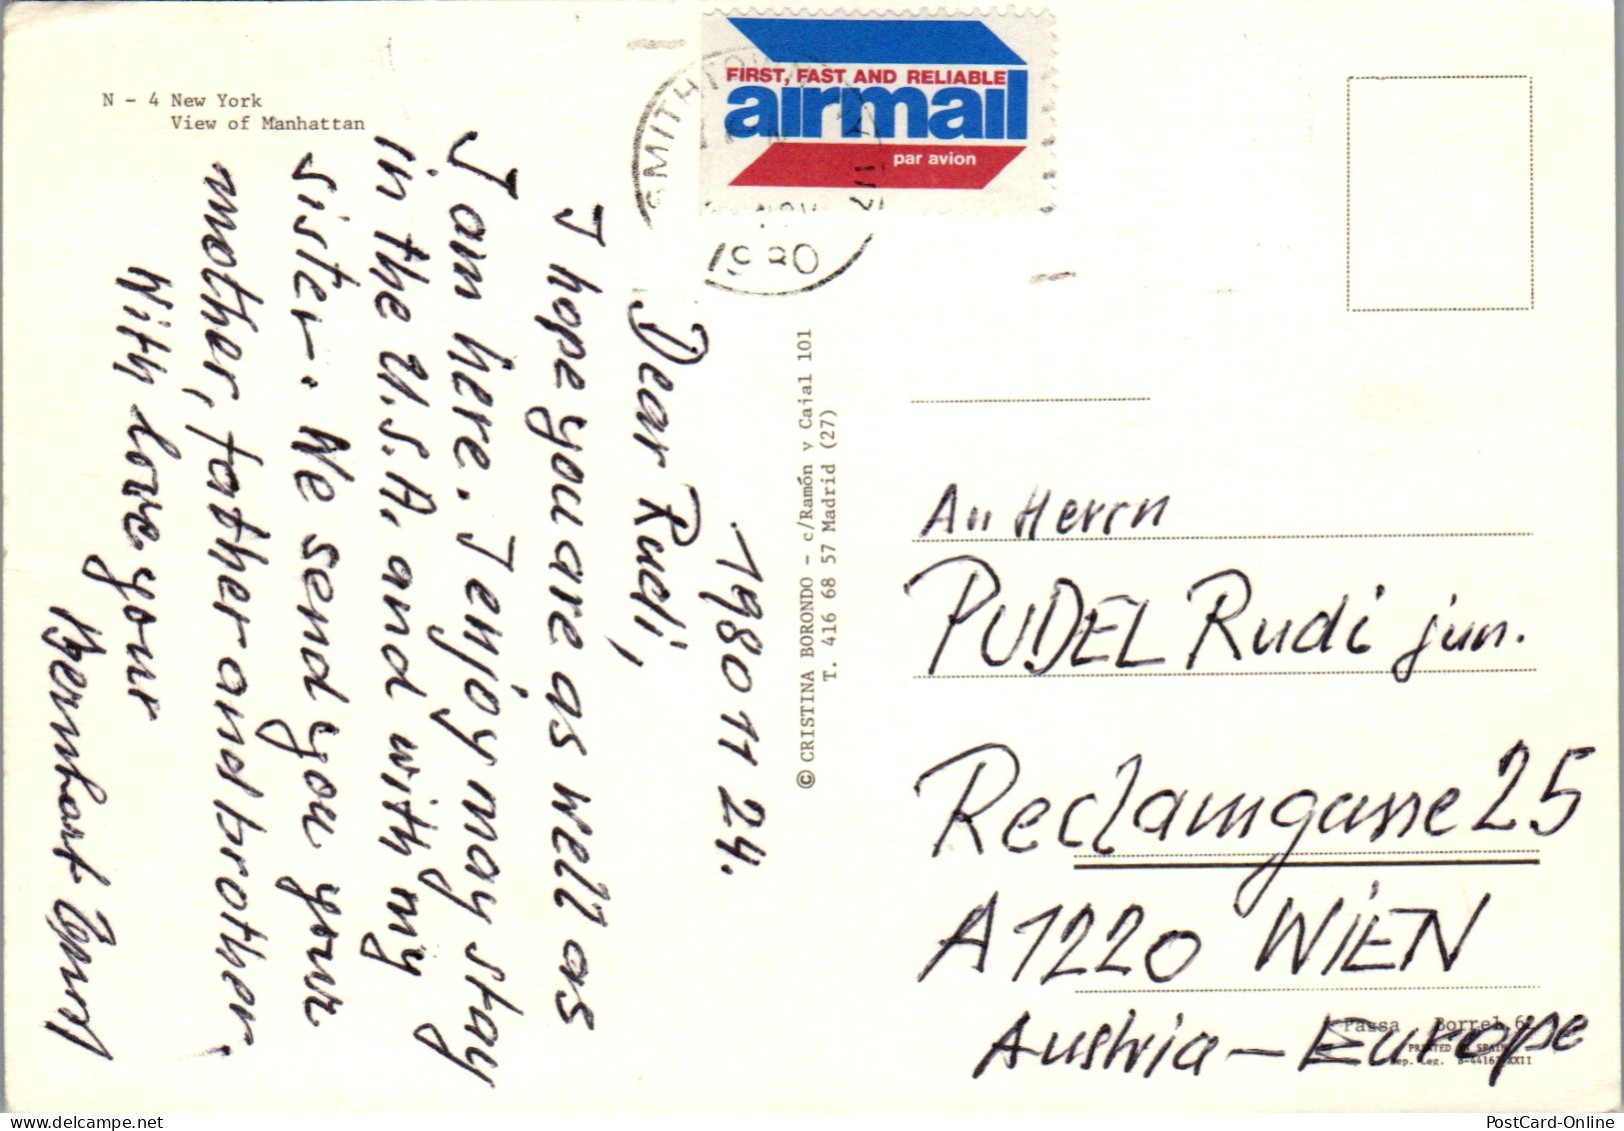 N - 4 New York
View of Manhattan
FIRST, FAST AND RELIABLE
airmail
par avion
SMITHTOWN
NOV
1980
1980 11 24.
Dear Rudi,
I hope you are as well as
I am here. I enjoy may stay
in the U.S.A. and with my
sister. We send you your
mother, father and brother.
With love your
Bernhart
© CRISTINA BORONDO - c/Ramón y Cajal 101
T. 416 68 57 Madrid (27)
An Herrn
PUDEL Rudi jun.
Reclamgasse 25
A 1220 WIEN
Austria - Europe
Passa Borrel, 6
PRINTED IN SPAIN
Dep. Leg. B-44162-XXII
PostCard-Online